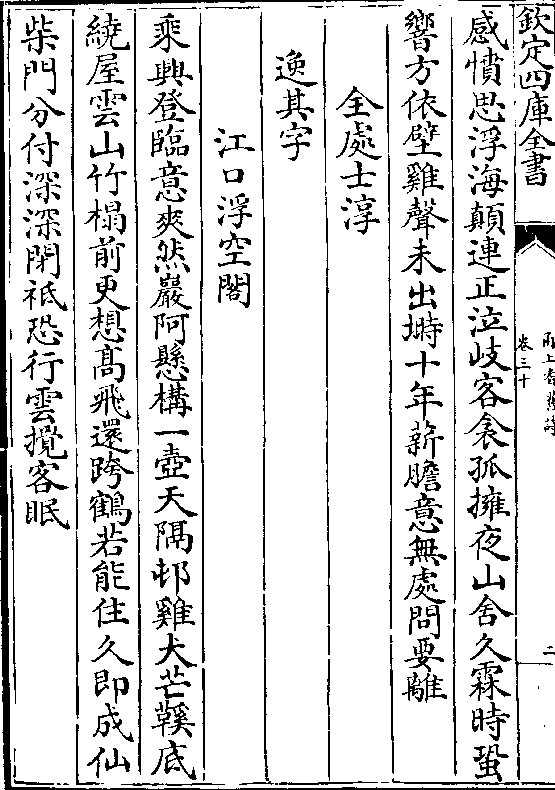 欽定四庫全書
卷三十
二
感憤思浮海顛連正泣岐客衾孤擁夜山舍久霖時蛩
響方依壁雞聲未出塒十年薪膽意無處問要離
全處士淳
逸其字
江口浮空閣
乘興登臨意爽然巖阿懸構一壺天隅邨雞犬芒鞵底
繞屋雲山竹榻前更想髙飛還跨鶴若能住久即成仙
柴門分付深深閉祗恐行雲攪客眠